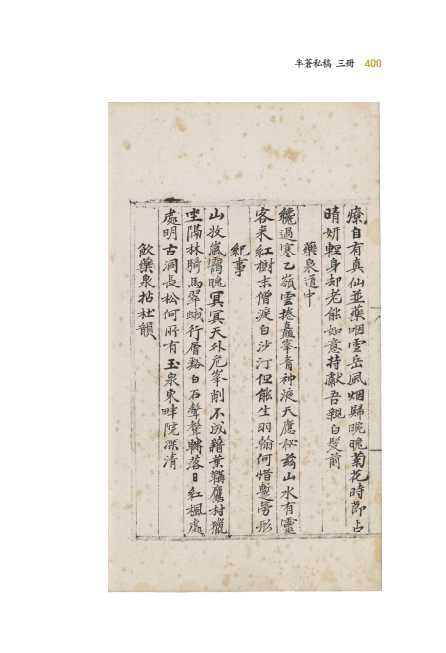 半蒼私稿 三冊 400
療自有真仙並藥咽雲岳風烟歸晼晚菊花時節占
晴妍輕身却老能如意持獻吾親白髮前
藥泉道中
纔過寒乙嶺雲捲矗峯青神液天應秘茲山水有靈
客来紅樹末僧漱白沙汀但能生羽翰何惜蹔勞形
紀事
山妝嵐靄晚冥冥天外危峯削不成藉葉韝鷹村獵
坐隔林騎馬翠娥行層谿白石聲聲轉落日紅楓處
處明古洞長松何所有玉泉東畔院深清
飲藥泉拈杜韻